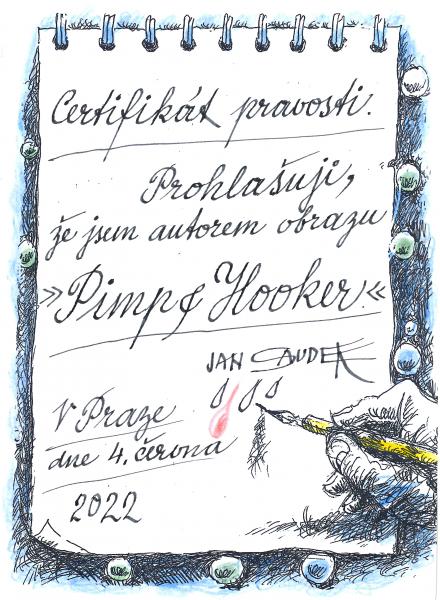 Certifikát pravosti.
Prohlašuji,
že jsem autorem obrazu
»Pimp & Hooker.«
JAN SAUDEK
V Praze
dne 4. června
2022